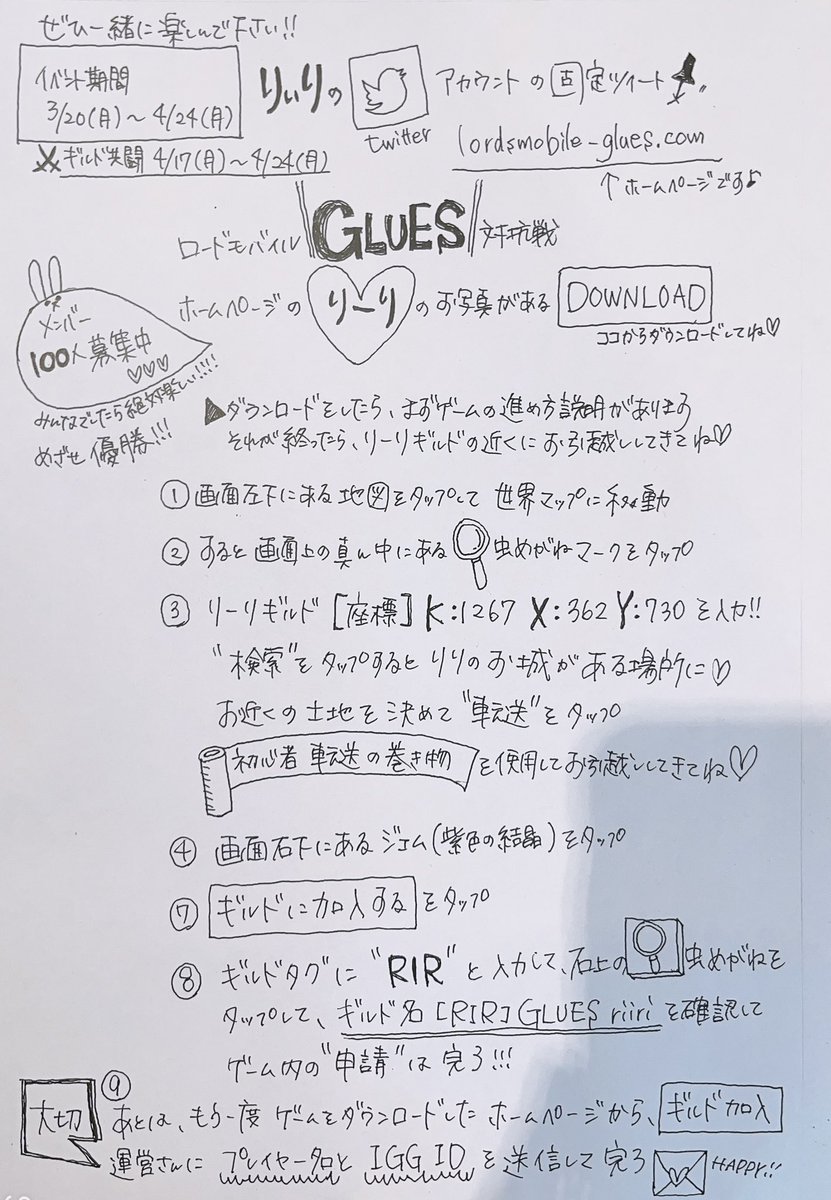 ぜひ一緒に楽しんで下さい!!
イベント期間
3/20(月)～4/24(月)
※ギルド共闘 4/17(月)～4/24(月)
りぃりの
twitter
アカウントの固定ツイート
lordsmobile-glues.com
↑ホームページです♪
ロードモバイル GLUES 対抗戦
メンバー
100人募集中
♡♡♡
みんなでしたら絶対楽しい!!!!
めざせ優勝!!!
ホームページの りーり のお写真がある DOWNLOAD
ココからダウンロードしてね♡
▲ダウンロードをしたら、まずゲームの進め方説明があります
それが終ったら、リーリギルドの近くにお引越ししてきてね♡
① 画面左下にある地図をタップして 世界マップに移動
② すると画面上の真ん中にある 虫めがねマークをタップ
③ リーリギルド [座標] K:1267 X:362 Y:730 を入力!!
"検索"をタップすると りりのお城がある場所に♡
お近くの土地を決めて"転送"をタップ
初心者 転送の巻き物 を使用してお引越ししてきてね♡
④ 画面右下にあるジェム(紫色の結晶)をタップ
⑦ ギルドに加入する をタップ
⑧ ギルドタグに "RIR" と入力して、右上の 虫めがねを
タップして、ギルド名 [RIR] GLUES riiri を確認して
ゲーム内の"申請"は完了!!!
大切
⑨ あとは、もう一度 ゲームをダウンロードした ホームページから、ギルド加入
運営さんに プレイヤー名と IGG ID を送信して完了 HAPPY!!